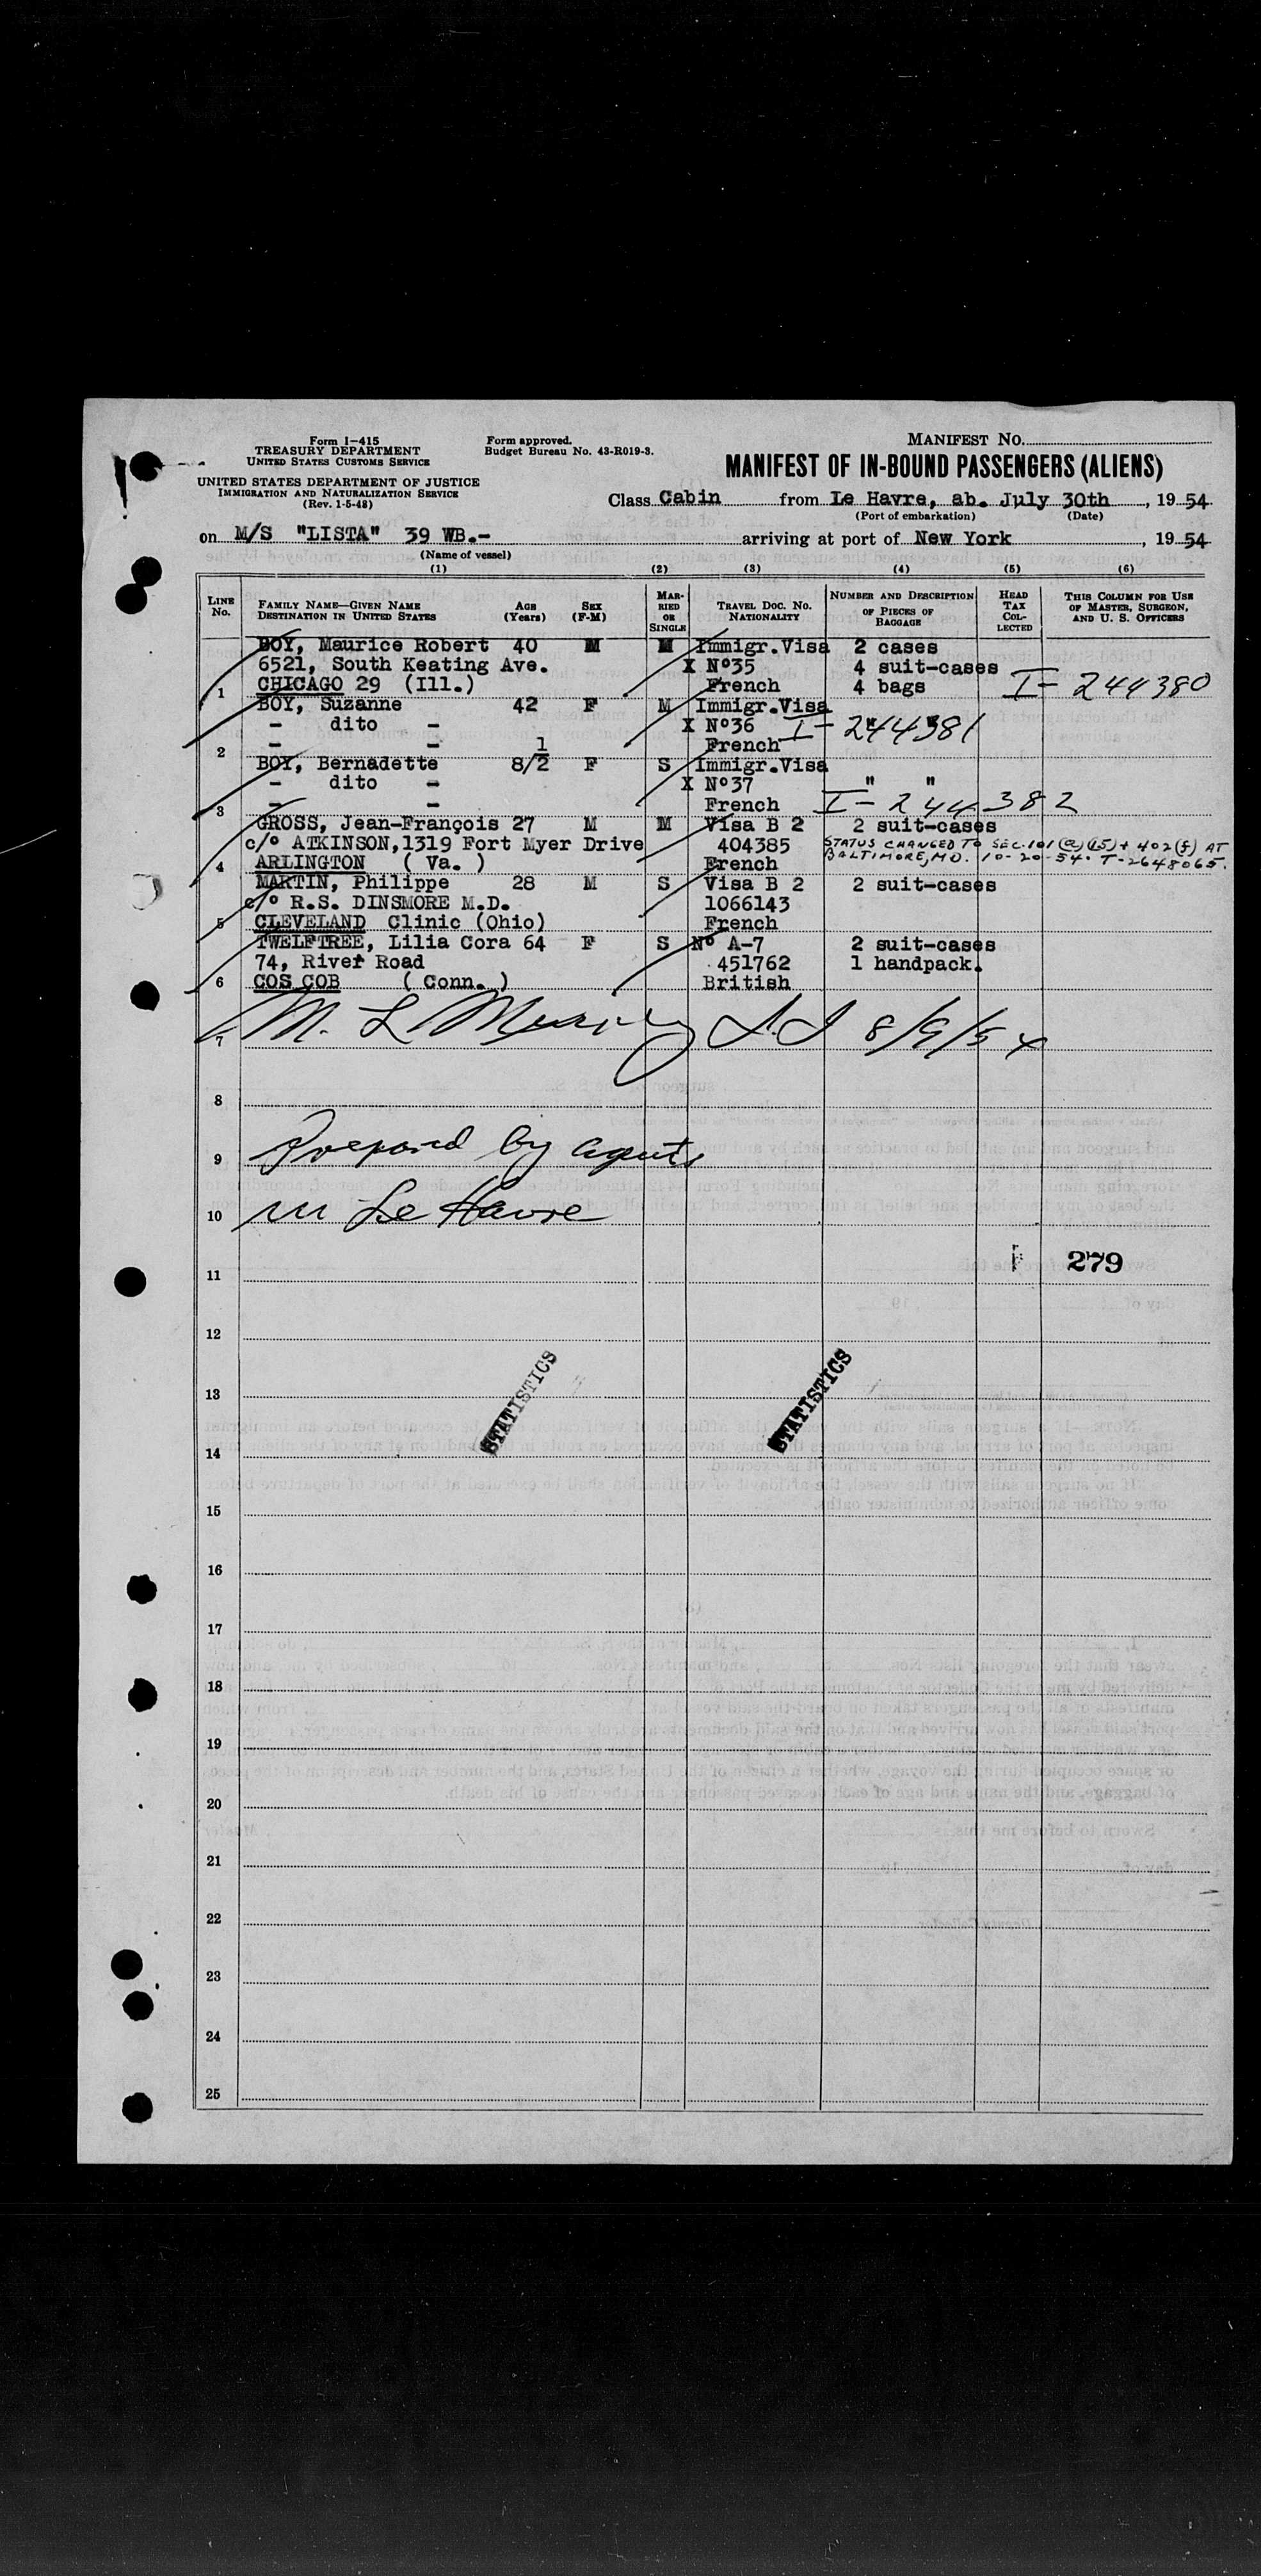 Form I-415
TREASURY DEPARTMENT
UNITED STATES CUSTOMS SERVICE
UNITED STATES DEPARTMENT OF JUSTICE
IMMIGRATION AND NATURALIZATION SERVICE
(Rev. 1-5-48)
Form approved.
Budget Bureau No. 43-R019-3.
MANIFEST NO.
MANIFEST OF IN-BOUND PASSENGERS (ALIENS)
Class Cabin from Le Havre, ab. July 30th, 1954
(Port of embarkation) (Date)
on M/S "LISTA" 39 WB.- arriving at port of New York, 1954
(Name of vessel)
(1) (2) (3) (4) (5) (6)
LINE No. FAMILY NAME—GIVEN NAME DESTINATION IN UNITED STATES AGE (Years) SEX (F-M) MARRIED OR SINGLE TRAVEL DOC. NO. NATIONALITY NUMBER AND DESCRIPTION OF PIECES OF BAGGAGE HEAD TAX COLLECTED THIS COLUMN FOR USE OF MASTER, SURGEON, AND U. S. OFFICERS
BOY, Maurice Robert 40 M M Immigr.Visa 2 cases
6521, South Keating Ave. X Nº35 4 suit-cases
1 CHICAGO 29 (Ill.) French 4 bags I-244380
BOY, Suzanne 42 F M Immigr.Visa
- dito - X Nº36 " " I-244381
2 - - French
BOY, Bernadette 8 1/2 F S Immigr.Visa
- dito - X Nº37 " "
3 - - French I-244382
GROSS, Jean-François 27 M M Visa B 2 2 suit-cases
c/o ATKINSON,1319 Fort Myer Drive 404385 STATUS CHANGED TO SEC.101(a)(15)+402(f) AT
4 ARLINGTON ( Va. ) French BALTIMORE, MD. 10-20-54. T-2648065.
MARTIN, Philippe 28 M S Visa B 2 2 suit-cases
c/o R.S. DINSMORE M.D. 1066143
5 CLEVELAND Clinic (Ohio) French
TWELFTREE, Lilia Cora 64 F S Nº A-7 2 suit-cases
74, River Road 451762 1 handpack.
6 COS COB ( Conn. ) British
7 M. L. 8/9/54
8
9 Prepared by agents
10 in Le Havre
279
11
12
13
STATISTICS STATISTICS
14
15
16
17
18
19
20
21
22
23
24
25